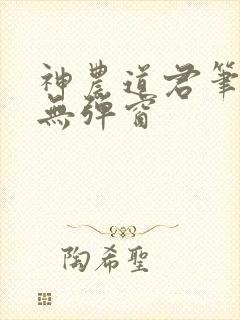 神農道君筆
無彈窗
陶希聖